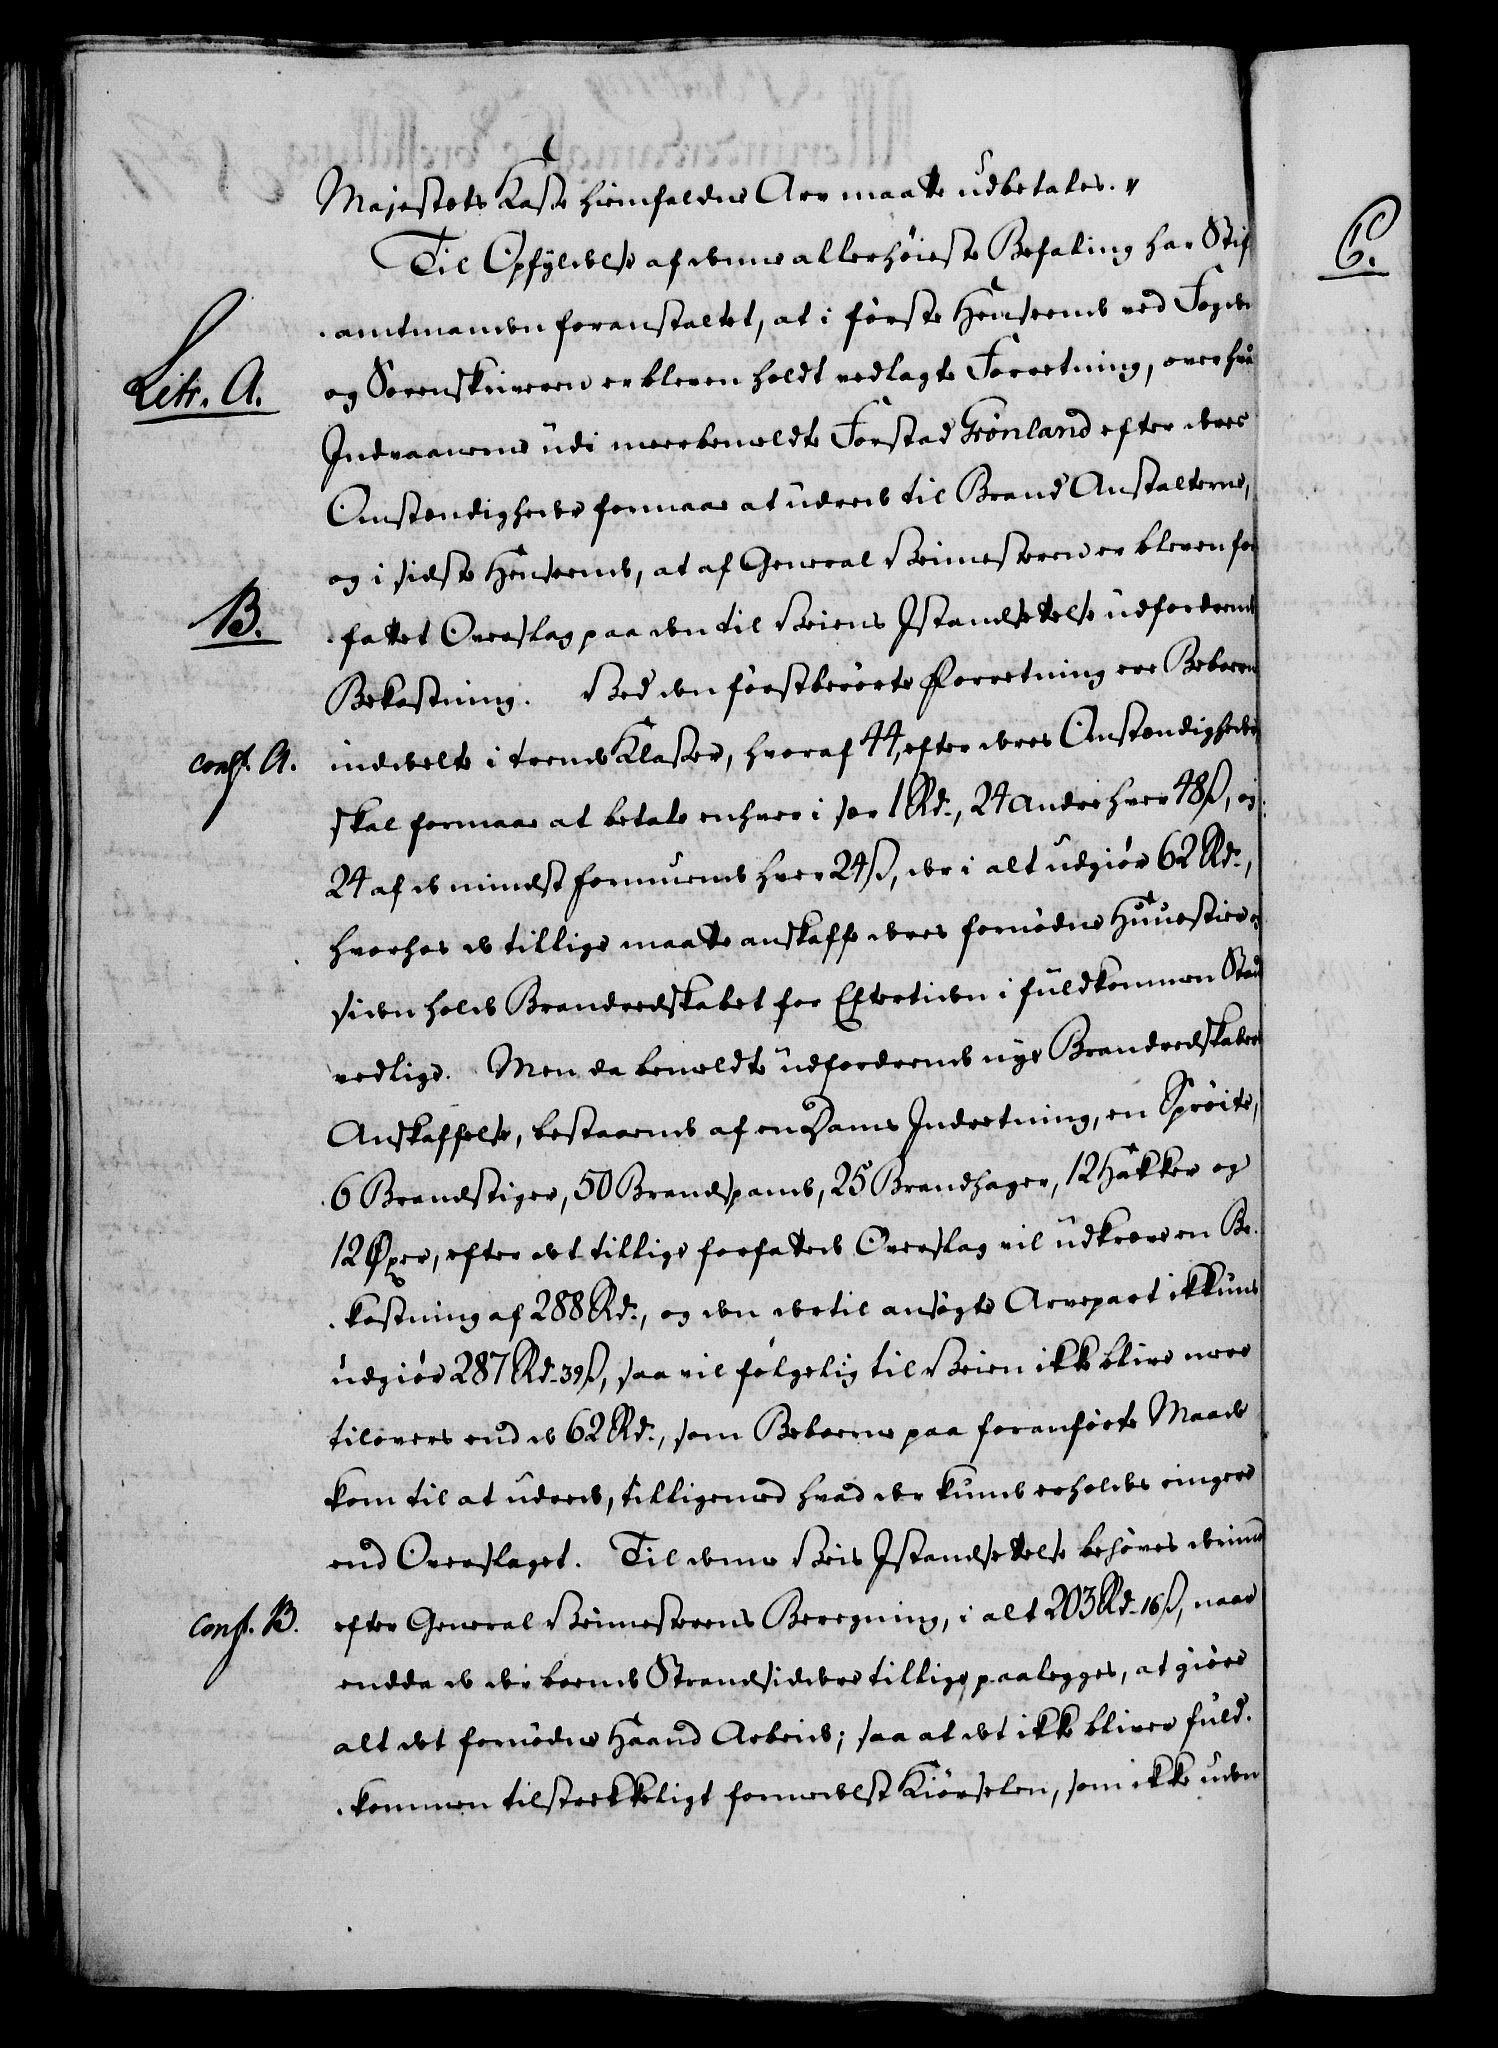 Majestets Kasse hiemfaldne Arv maatte udbetales. "
Til Opfyldelse af denne allerhøieste Befaling har Stif
amtmanden foranstaltet, at i første Henseende ved Fogden
Litr. A.
og Sorenskriveren er bleven holdt vedlagte Forretning, over hva
Indvaanerne udi meerbemeldte Forstad Grønland efter deres
Omstendigheder formaae at udrede til Brand Anstalterne,
og i sidste Henseende, at af General Veimesteren er bleven for
B.
fattet Overslag paa den til Veiens Istandsettelse udfordrende
Bekostning. Ved den førstberørte Forretning ere Beboerne
conf. A.
inddelte i trende Klasser, hvoraf 44, efter deres Omstendigheder
skal formaae at betale enhver i sær 1 Rd., 24 andre hver 48 ß, og
24 af de mindst formuende hver 24 ß, der i alt udgiør 62 Rd.,
hvorhos de tillige maatte anskaffe deres fornødne Huusstier og
siden holde Brandredskabet for Eftertiden i fuldkommen Stand
vedlige. Men da bemeldte udfordrende nye Brandredskabers
Anskaffelse, bestaaende af en Dams Indretning, en Sprøite,
6 Brandstiger, 50 Brandspande, 25 Brandhager, 12 Hakker og
12 Øxer, efter det tillige forfattede Overslag vil udkræve en Be-
kostning af 288 Rd., og den dertil ansøgte Arvepart ikkuns
udgiør 287 Rd. 39 ß, saa vil følgelig til Veien ikke blive mere
tilovers end de 62 Rd., som Beboerne paa foranførte Maade
kom til at udrede, tilligemed hvad der kunde erholdes ringere
end Overslaget. Til denne Veis Istandsettelse behøves derimod
conf. B.
efter General Veimesterens Beregning, i alt 203 Rd. 16 ß, naar
endda de der boende Strandsiddere tillige paalegges, at giøre
alt det fornødne Haand Arbeide; saa at det ikke bliver fuld-
kommen tilstrekkeligt formedelst Kiørselen, som ikke uden
C.